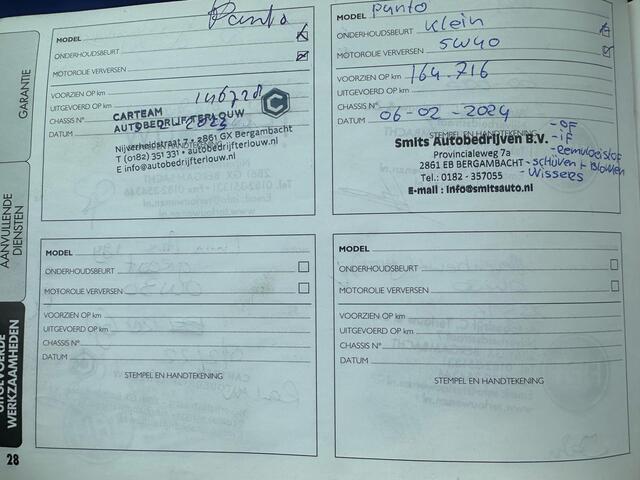 GARANTIE
AANVULLENDE
DIENSTEN
UITGEVOERDE
WERKZAAMHEDEN
28
MODEL Punto
ONDERHOUDSBEURT
MOTOROLIE VERVERSEN
VOORZIEN OP km
UITGEVOERD OP km 146728
CHASSIS N°
DATUM 2023
CARTEAM
AUTOBEDRIJF TERLOUW
Nijverheidstraat 7 • 2861 GX Bergambacht
T (0182) 351 331 • autobedrijfterlouw.nl
E info@autobedrijfterlouw.nl
MODEL punto
ONDERHOUDSBEURT Klein
MOTOROLIE VERVERSEN 5W40
VOORZIEN OP km
UITGEVOERD OP km 164.716
CHASSIS N°
DATUM 06-02-2024
STEMPEL EN HANDTEKENING
Smits Autobedrijven B.V.
Provincialeweg 7a
2861 EB BERGAMBACHT
Tel.: 0182 - 357055
E-mail : info@smitsauto.nl
- OF
- iF
- Remvloeistof
- schijven + Blokken
- wissers
MODEL
ONDERHOUDSBEURT
MOTOROLIE VERVERSEN
VOORZIEN OP km
UITGEVOERD OP km
CHASSIS N°
DATUM
STEMPEL EN HANDTEKENING
MODEL
ONDERHOUDSBEURT
MOTOROLIE VERVERSEN
VOORZIEN OP km
UITGEVOERD OP km
CHASSIS N°
DATUM
STEMPEL EN HANDTEKENING